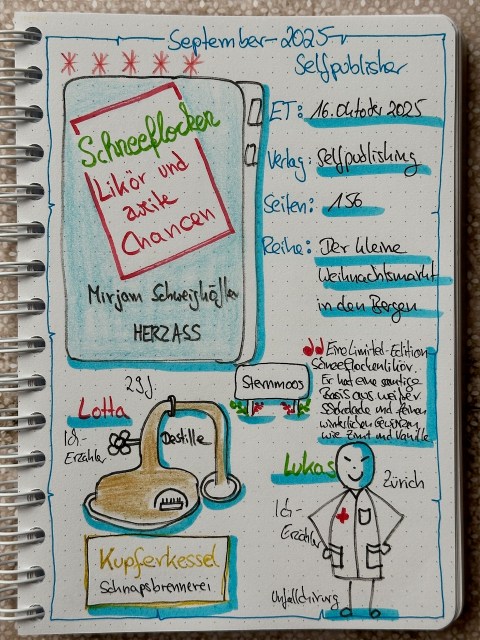 September - 2025
Selfpublisher
Schneeflocken
Likör und
zweite
Chancen
Mirjam Schweighöfer
HERZASS
ET: 16. Oktober 2025
Verlag: Selfpublishing
Seiten: 156
Reihe: Der kleine
Weihnachtsmarkt
in den Bergen
Eine Limited-Edition
Schneeflockenlikör.
Er hat eine samtige
Basis aus weißer
Schokolade und feinen
winterlichen Gewürzen
wie Zimt und Vanille
Sternmoos
29 J.
Lotta
Ich-
Erzähler
Destille
Kupferkessel
Schnapsbrennerei
Lukas
Zürich
Ich-
Erzähler
Unfallchirurg